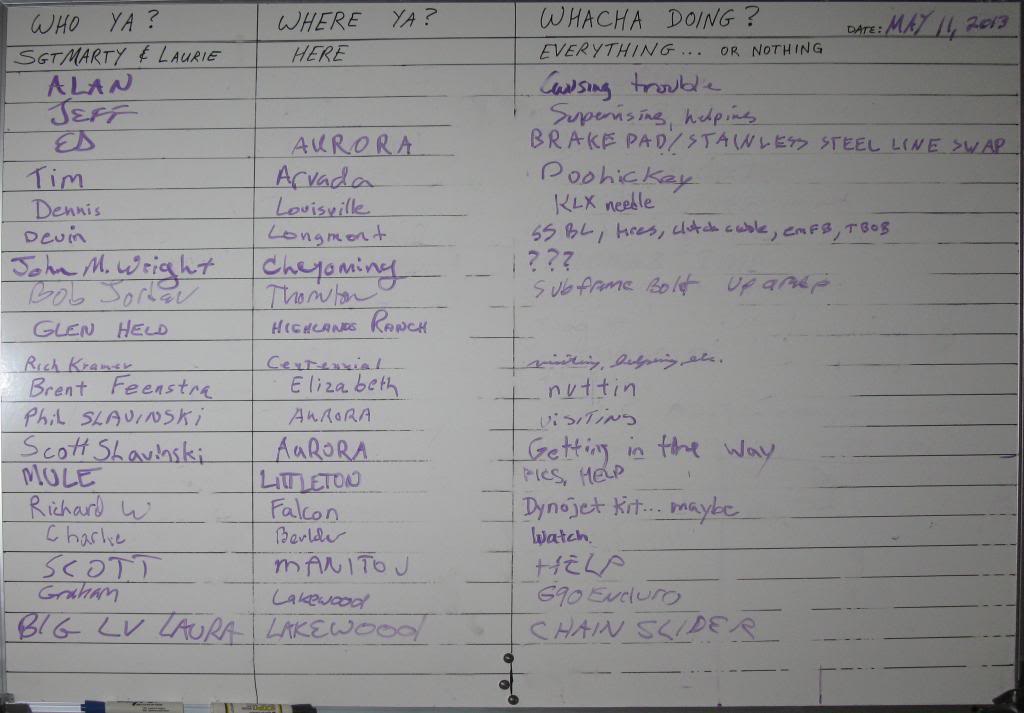 WHO YA? WHERE YA? WHACHA DOING? DATE: MAY 11, 2013
SGTMARTY & LAURIE HERE EVERYTHING... OR NOTHING
ALAN Causing trouble
JEFF Supervising, helping
ED AURORA BRAKE PAD/STAINLESS STEEL LINE SWAP
Tim Arvada Doohickey
Dennis Louisville KLX needle
Devin Longmont SS BL, tires, clutch cable, emFB, TBOB
John M. Wright Cheyoming ???
Bob Thornton Subframe Bolt
GLEN HELD HIGHLANDS RANCH
Rich Kramer Centennial visiting, helping, etc.
Brent Feenstra Elizabeth nuttin
Phil SLAVINSKi AuRORA visiTiNG
Scott Slavinski AuRORA Getting in the way
MULE LITTLETON PICS, HELP
Richard W Falcon Dynojet Kit... maybe
Charlie Watch.
SCOTT MANITOU HELP
Graham Lakewood 690 Enduro
BIG LV LAURA LAKEWOOD CHAIN SLIDER